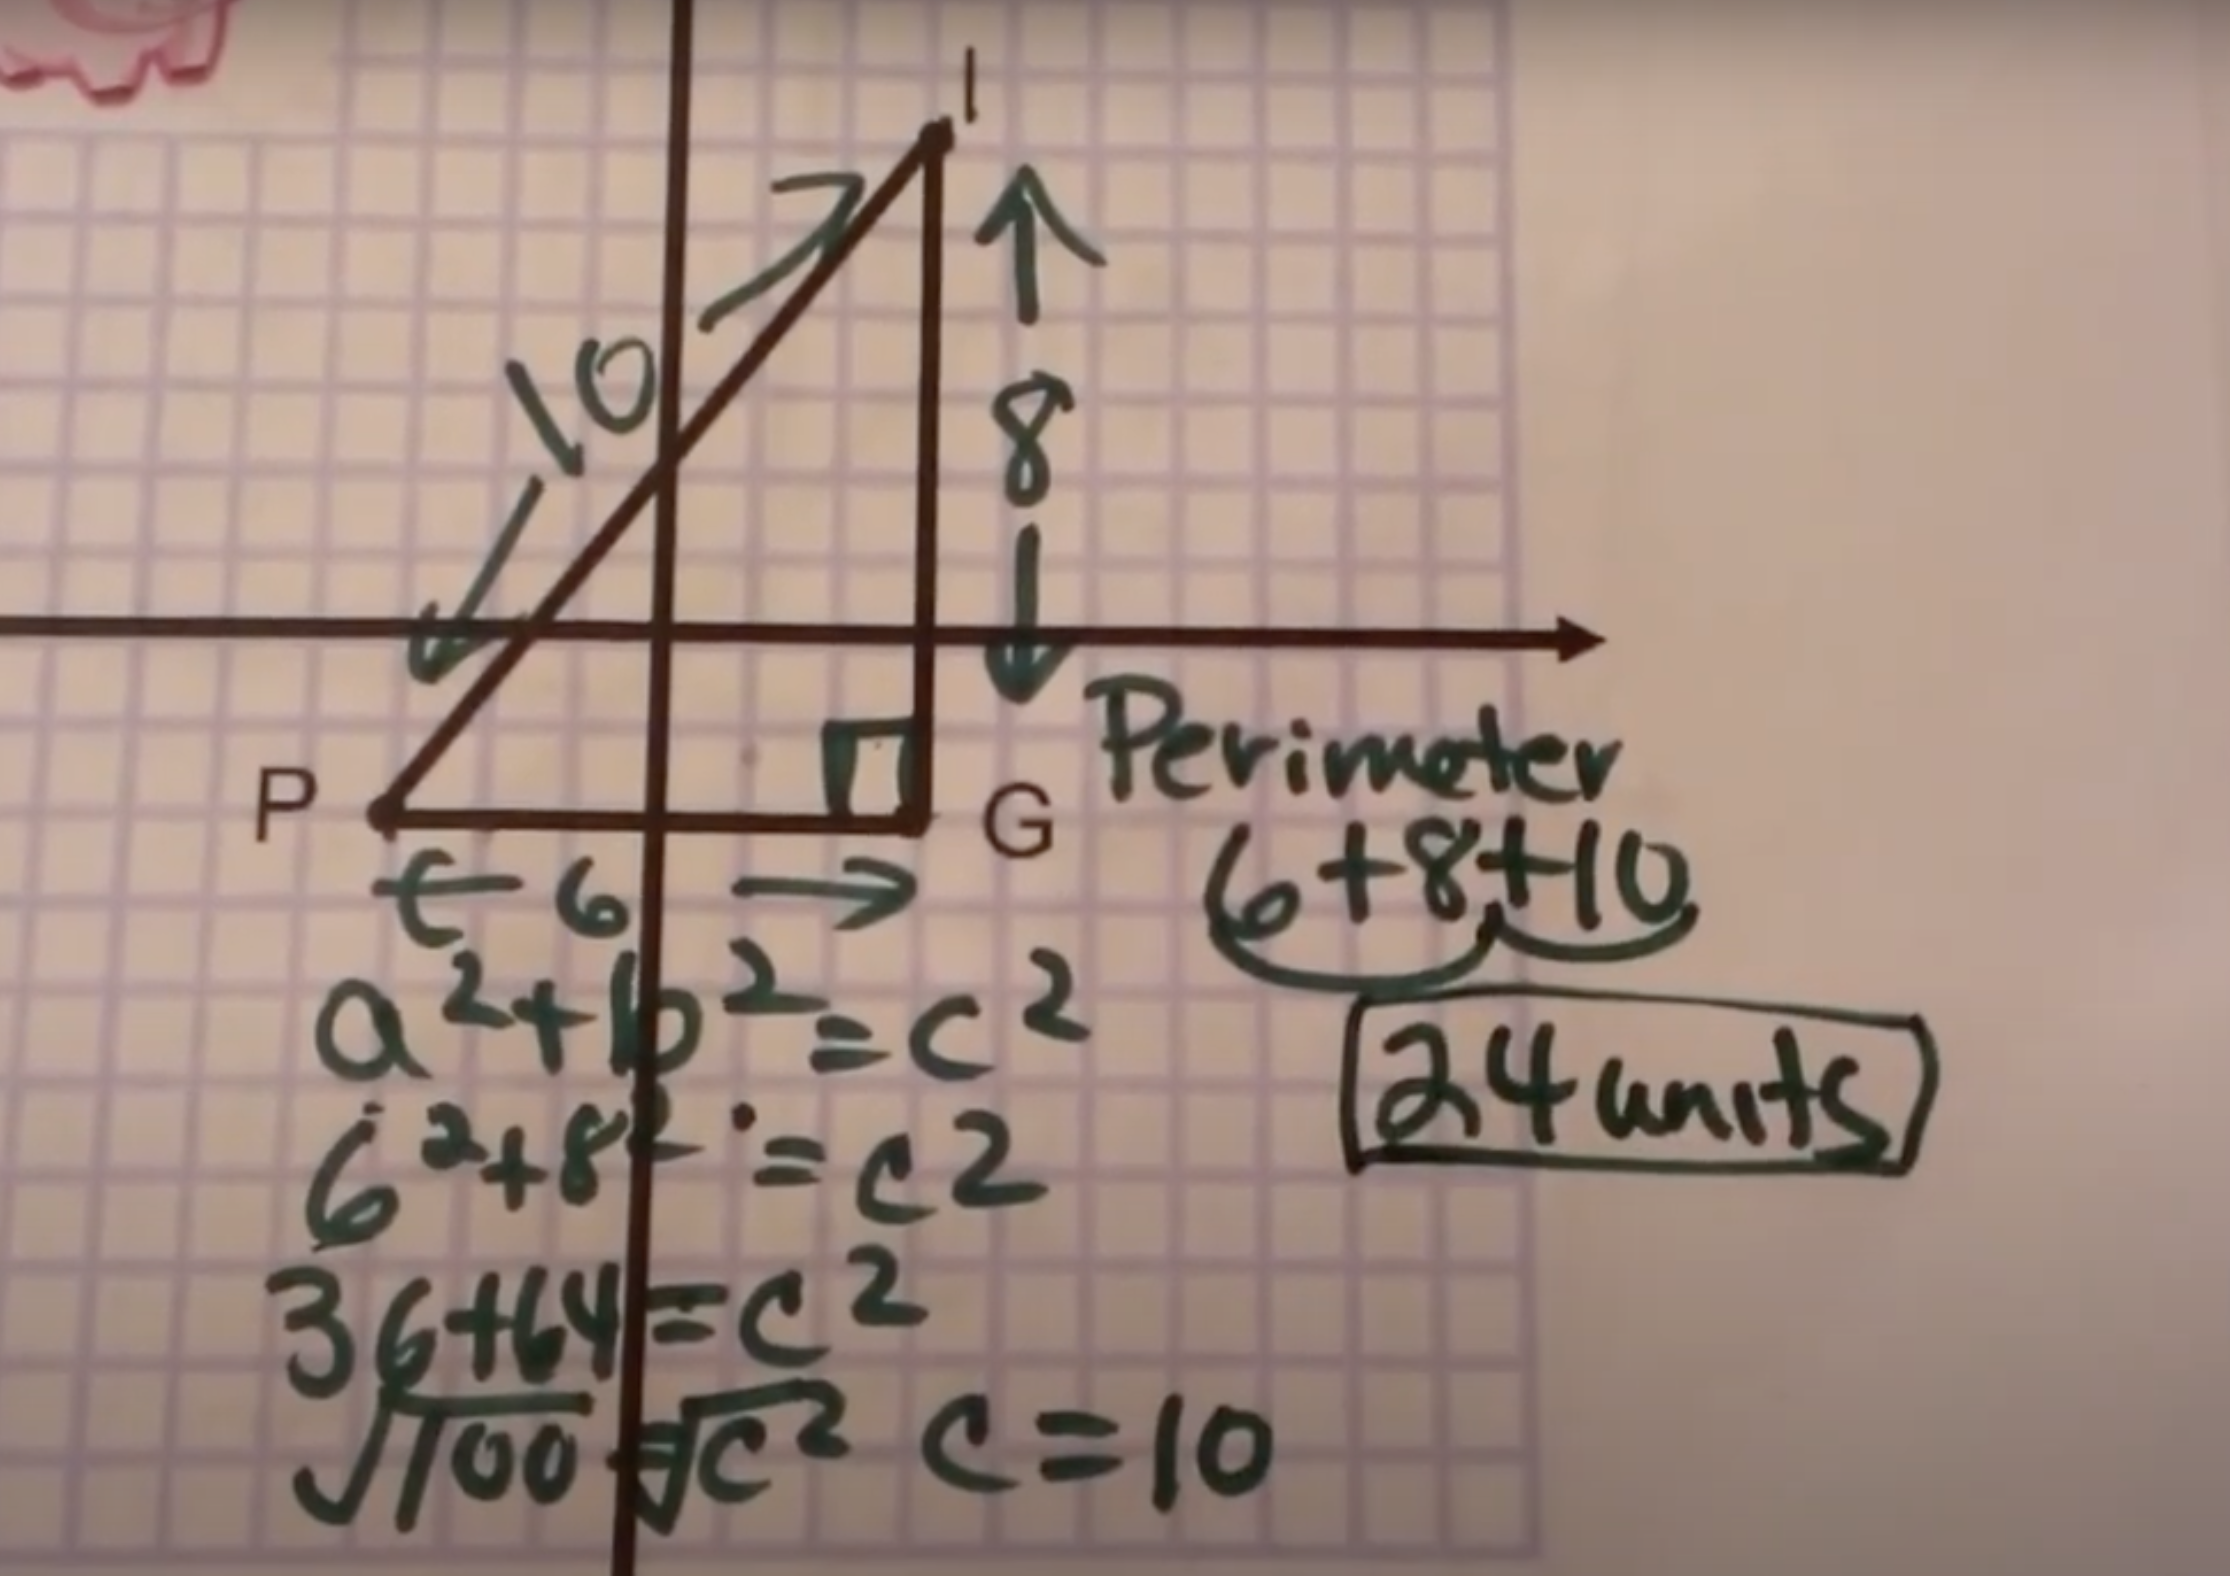 I
10
8
P
G
6
Perimeter
6+8+10
24 units
a²+b²=c²
6²+8²=c²
36+64=c²
√100=√c² c=10